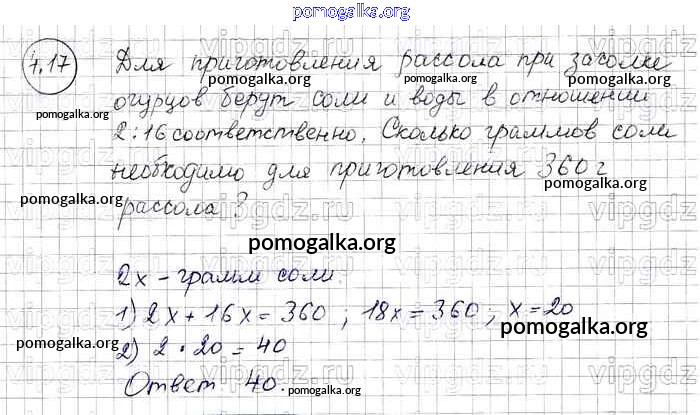 pomogalka.org
4.17 Для приготовления рассола при засолке
огурцов берут соли и воды в отношении
2:16 соответственно. Сколько граммов соли
необходимо для приготовления 360 г
рассола?
2x - грамм соли.
1) 2x + 16x = 360 ; 18x = 360 ; x = 20
2) 2 · 20 = 40
Ответ 40.
pomogalka.org
pomogalka.org
pomogalka.org
pomogalka.org
pomogalka.org
pomogalka.org
pomogalka.org
pomogalka.org
pomogalka.org
vipgdz.ru